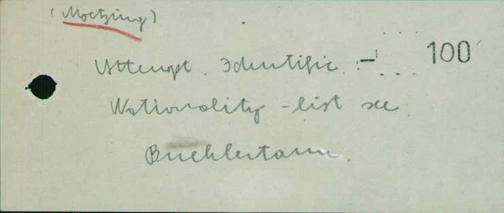 (Moetzing)
Attempt. Identific. :- 100
Nationality - list see
Buchlertann.